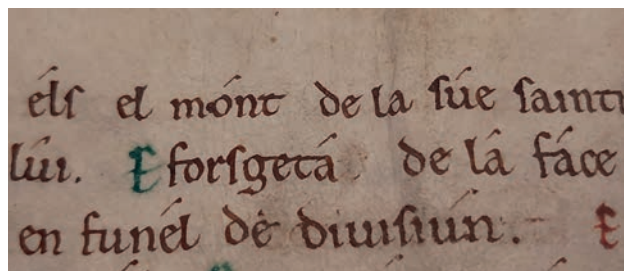 éls el mónt de la súe sainti
líu. E forsgetá de lá fáce
en funél dé diuisiún. E